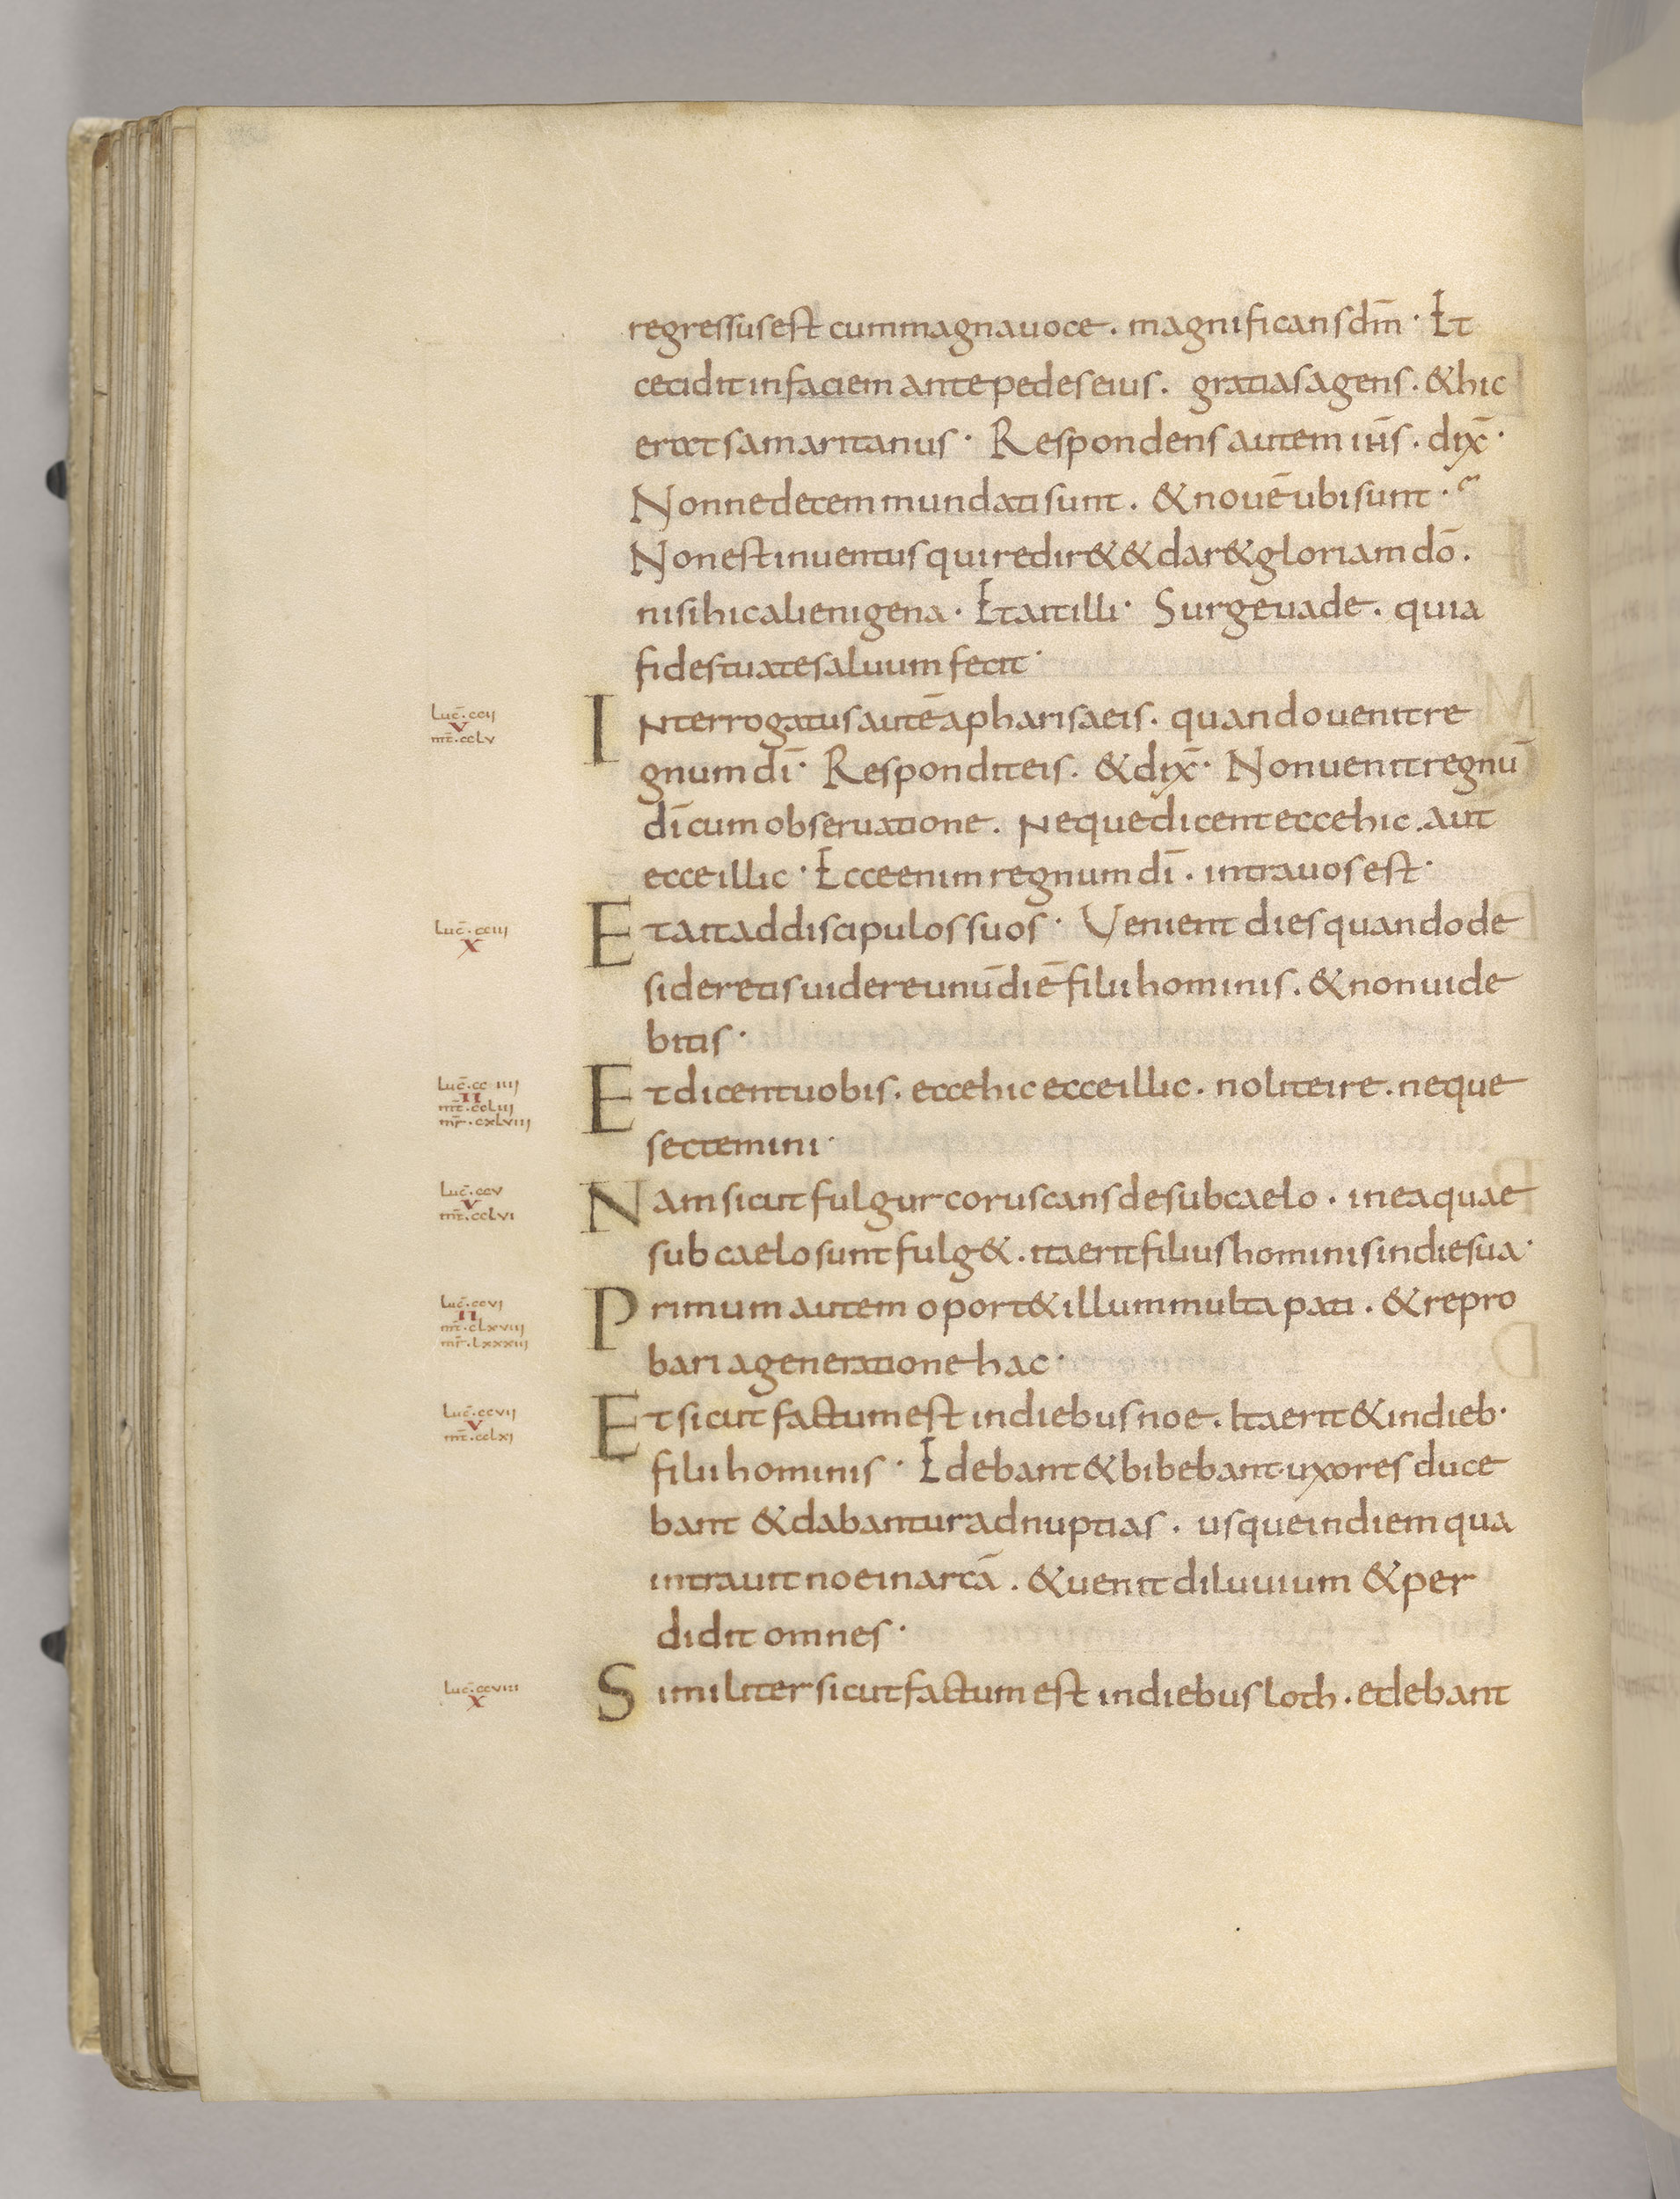 regressus est cum magna uoce. magnificans dm̄· Et
cecidit in faciem ante pedes eius. gratias agens. & hic
erat samaritanus· Respondens autem ihs̄. dix̄·
Nonne decem mundati sunt. & nouē ubi sunt·
Non est inuentus qui redir& & dar& gloriam dō.
nisi hic alienigena· Et ait illi· Surge uade. quia
fides tua te saluum fecit·
Luc̄. ccij
V
mt̄. ccLv
Interrogatus autē a pharisaeis. quando uenit re
gnum dī· Respondit eis. & dix̄· Non uenit regnū
dī cum obseruatione. Neque dicent ecce hic. aut
ecce illic· Ecce enim regnum dī. intra uos est·
Luc̄. cciij
X
Et ait ad discipulos suos· Venient dies quando de
sideretis uidere unū diē filii hominis. & non uide
bitis·
Luc̄. cc iiij
II
mt̄. ccLiij
mr̄. cxLviij
Et dicent uobis. ecce hic ecce illic. nolite ire. neque
sectemini·
Luc̄. ccv
V
mt̄. ccLvi
Nam sicut fulgur coruscans de sub caelo. in ea quae
sub caelo sunt fulg&. ita erit filius hominis in die sua·
Luc̄. ccvj
II
mt̄. cLxviij
mr̄. Lxxxiij
Primum autem oport& illum multa pati. & repro
bari a generatione hac·
Luc̄. ccvij
V
mt̄. ccLxj
Et sicut factum est in diebus noe. Ita erit & in dieb·
filii hominis· Edebant & bibebant· uxores duce
bant & dabantur ad nuptias. usque in diem qua
intrauit noe in arcā. & uenit diluuium & per
didit omnes·
Luc̄. ccviii
X
Similiter sicut factum est in diebus loth. edebant